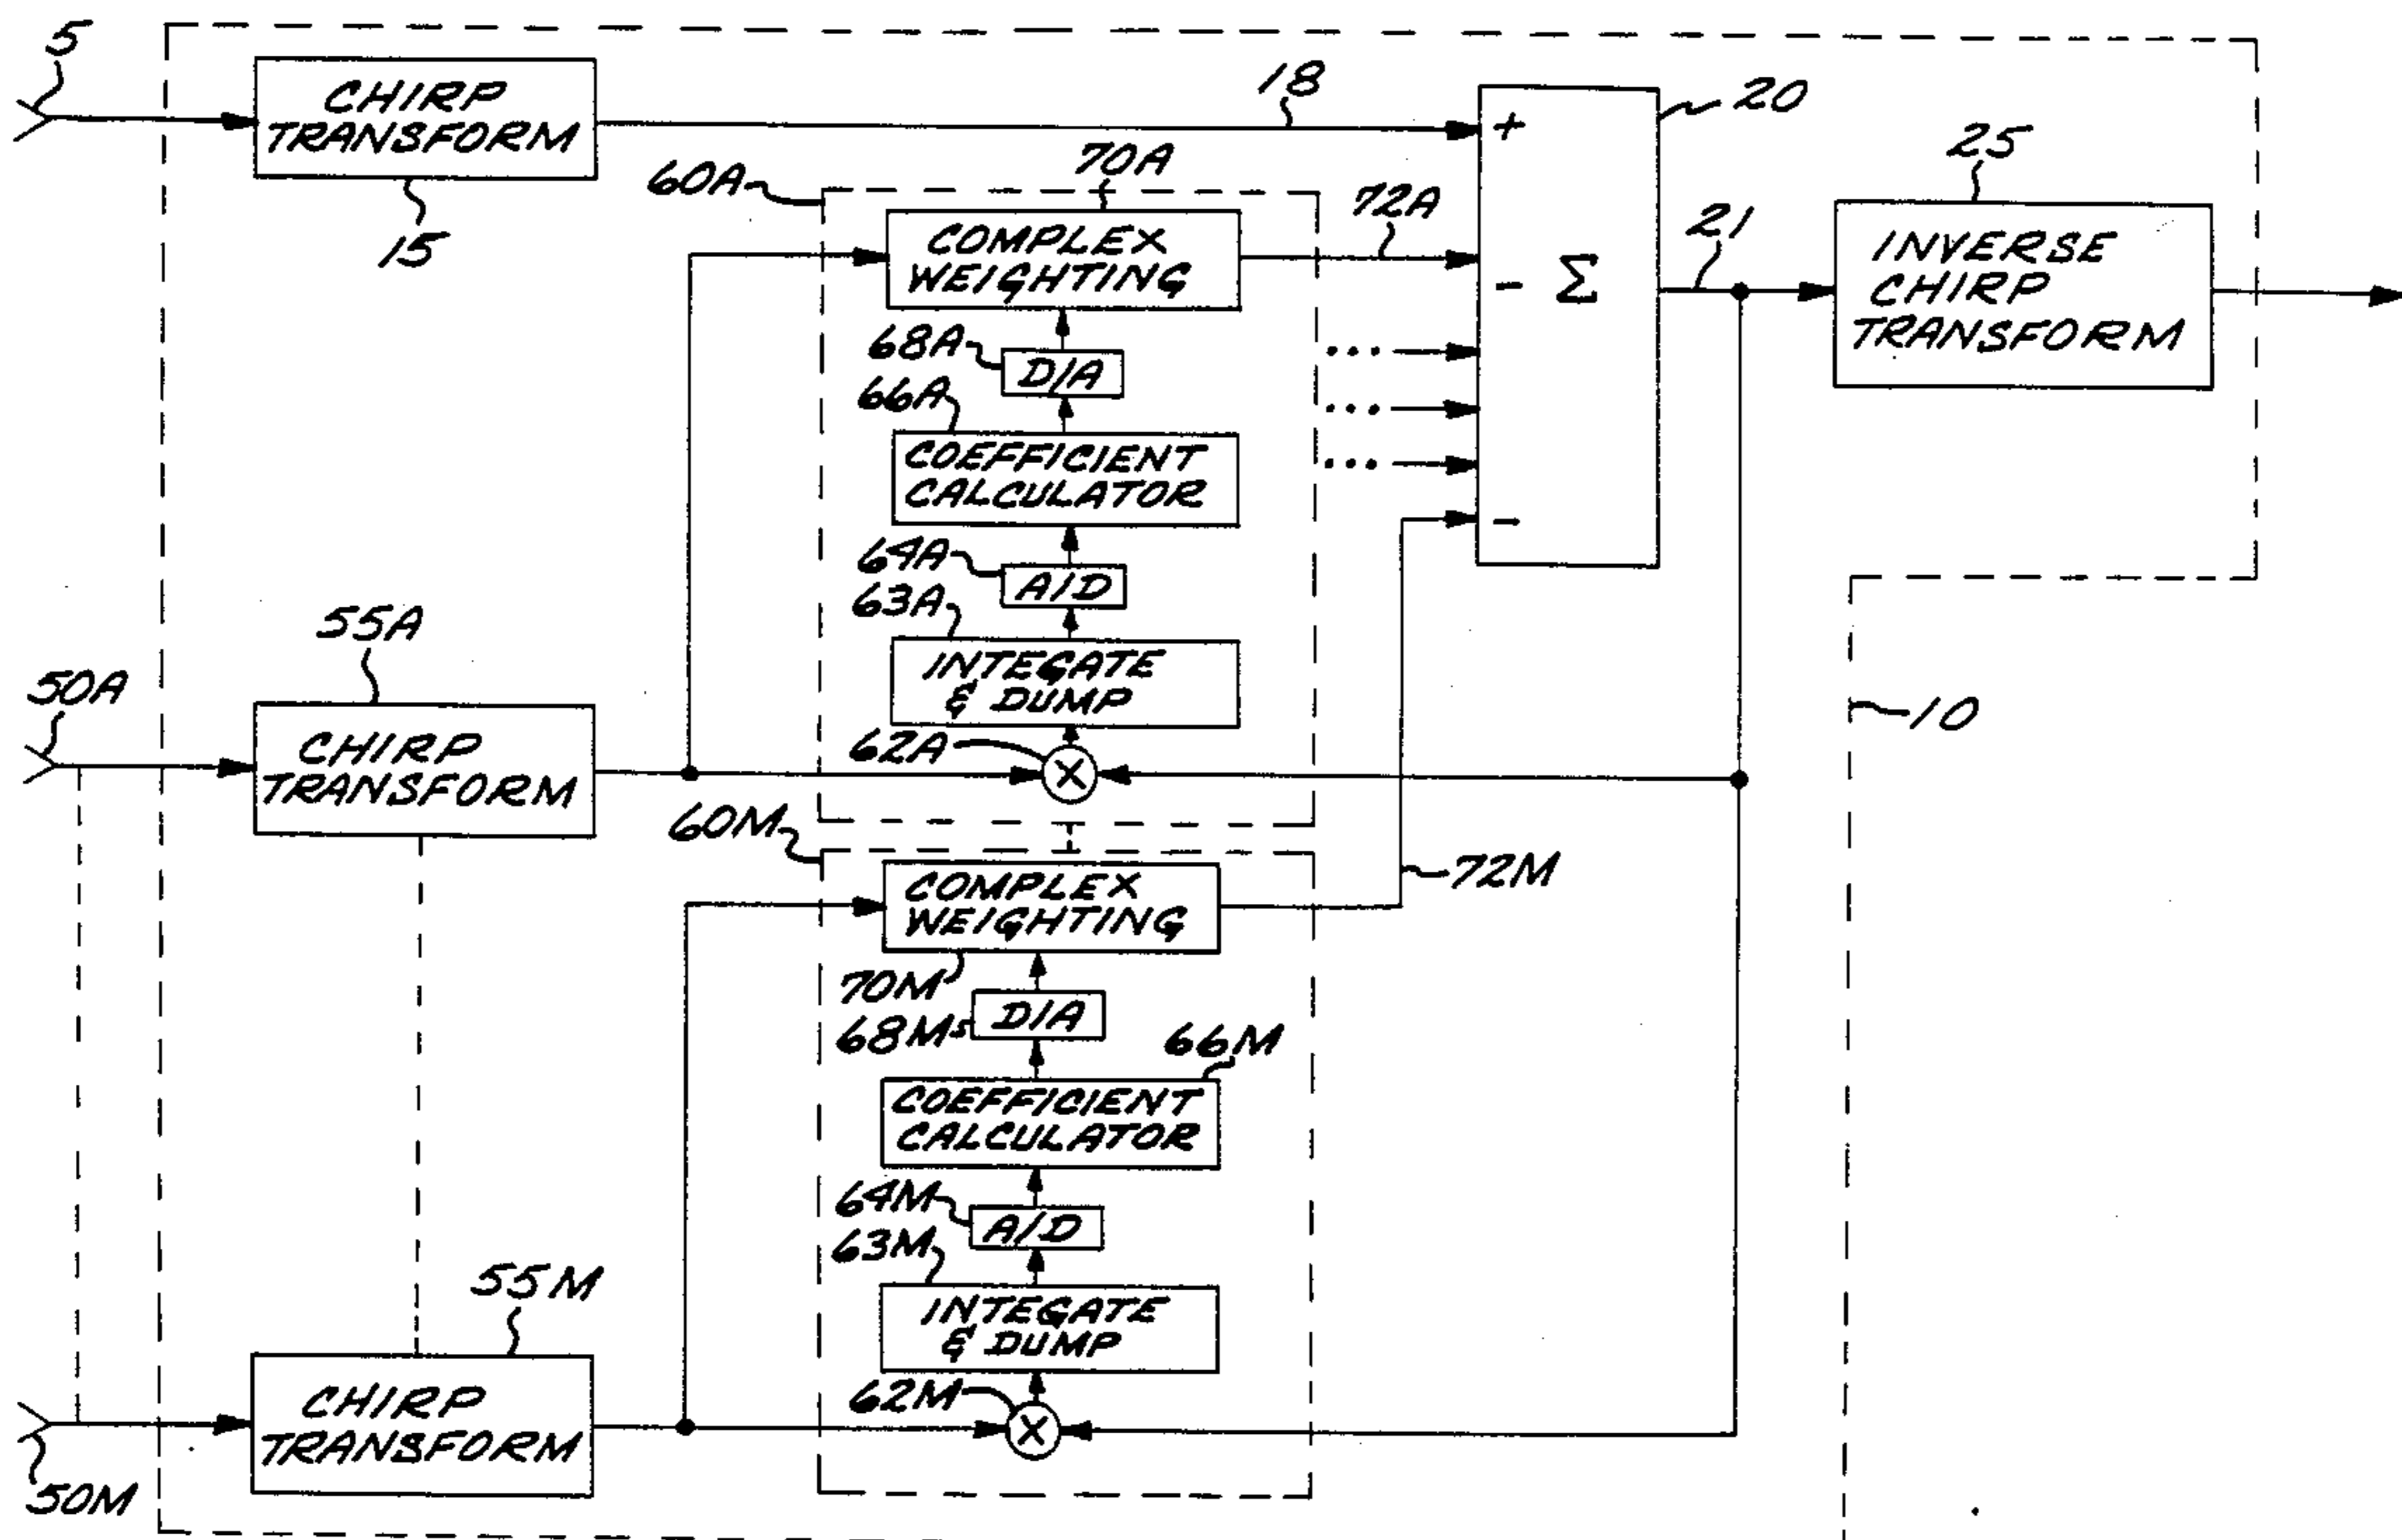 5
CHIRP
TRANSFORM
15
18
20
+
-
Σ
-
21
25
INVERSE
CHIRP
TRANSFORM
60A
70A
COMPLEX
WEIGHTING
72A
68A
D/A
...
66A
...
COEFFICIENT
CALCULATOR
...
64A
A/D
63A
INTEGATE
& DUMP
62A
X
10
50A
55A
CHIRP
TRANSFORM
60M
COMPLEX
WEIGHTING
72M
70M
D/A
68M
66M
COEFFICIENT
CALCULATOR
64M
A/D
63M
INTEGATE
& DUMP
62M
X
55M
CHIRP
TRANSFORM
50M